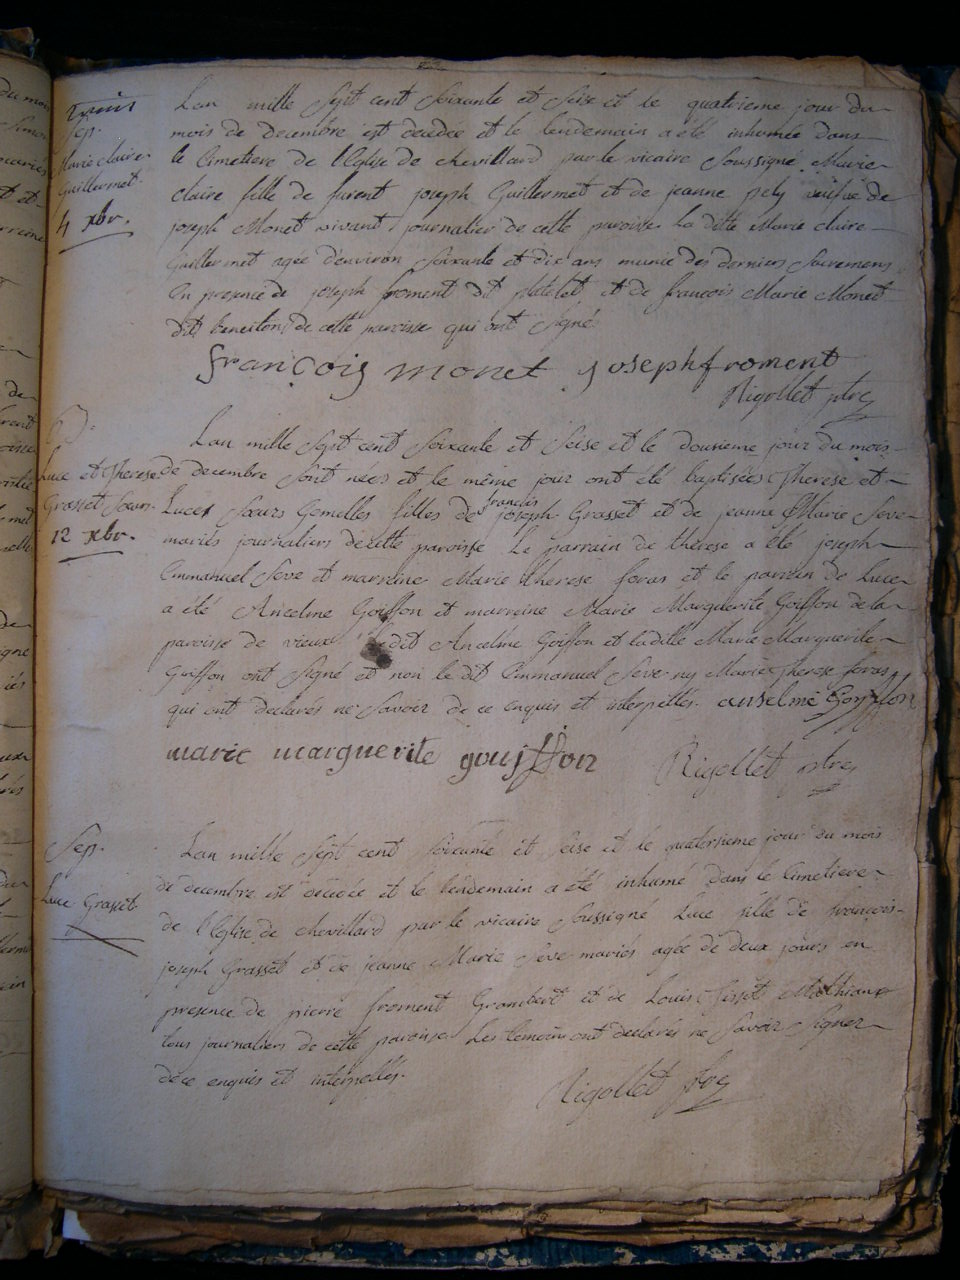 Sep.
Marie Claire
Guillermet
4 xbr.
Lan mille Sept cent Soixante et Seise et le quatrieme jour du
mois de decembre est decedée et le lendemain a été inhumée dans
le Cimetiere de l'Eglise de chevillard par le vicaire Soussigné Marie
claire fille de furent joseph Guillermet et de jeanne pely veufve de
joseph Monet vivant journalier de cette paroisse La ditte Marie claire
Guillermet agée d'environ Soixante et dix ans munie des derniers Sacremens
En presence de joseph froment dit platelet et de francois Marie Monet
dit beneiton de cette paroisse qui ont Signé
françois monet josephfroment
Rigollet ptre
B.
Luce et Therese
Grasset Sœurs
12 xbr.
Lan mille Sept cent Soixante et Seise et le dousieme jour du mois
de decembre Sont nées et le même jour ont été baptisées Therese et
Luce Sœurs Gemelles filles de françois joseph Grasset et de jeanne Marie Seve
mariés journaliers de cette paroisse Le parrain de therese a été joseph
Emmanuel Seve et marreine Marie therese foras et le parrain de Luce
a été Ancelme Goiffon et marreine Marie Marguerite Goiffon de la
paroisse de vieux Le dit Ancelme Goiffon et laditte Marie Marguerite
Goiffon ont Signé et non le dit Emmanuel Seve ny Marie Therese foras
qui ont declarés ne Savoir de ce Enquis et interpellés. anselme Goyffon
marie marguerite gouiffon Rigollet ptre
Sep.
Luce Grasset
Lan mille Sept cent Soixante et Seise et le quatorsieme jour du mois
de decembre est decedée et le lendemain a été inhumé dans le Cimetiere
de l'Eglise de chevillard par le vicaire Soussigné Luce fille de françois
joseph Grasset et de jeanne Marie Seve mariés agée de deux jours en
presence de pierre froment Grombert et de Louis Mathieu
tous journaliers de cette paroisse Les temoins ont declarés ne Savoir Signer
de ce enquis et interpellés.
Rigollet ptre